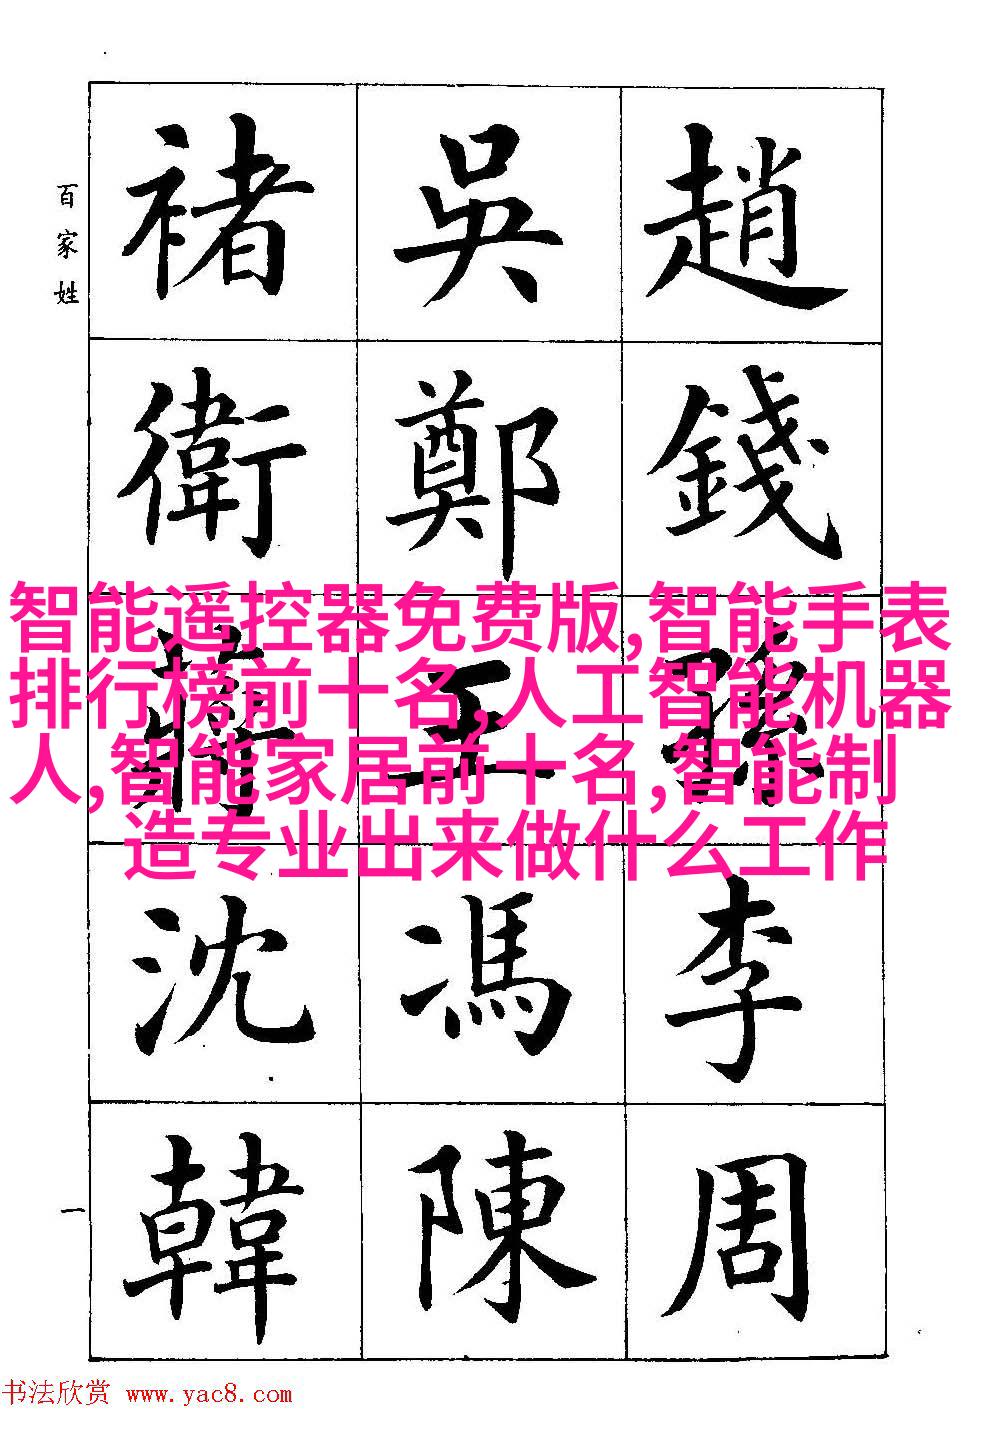 百家姓
趙錢孫李周
吳鄭王馮陳
褚衛蔣沈韓
一
智能遥控器免费版,智能手表
排行榜前十名,人工智能机器
人,智能家居前十名,智能制
造专业出来做什么工作
书法欣赏 www.yac8.com